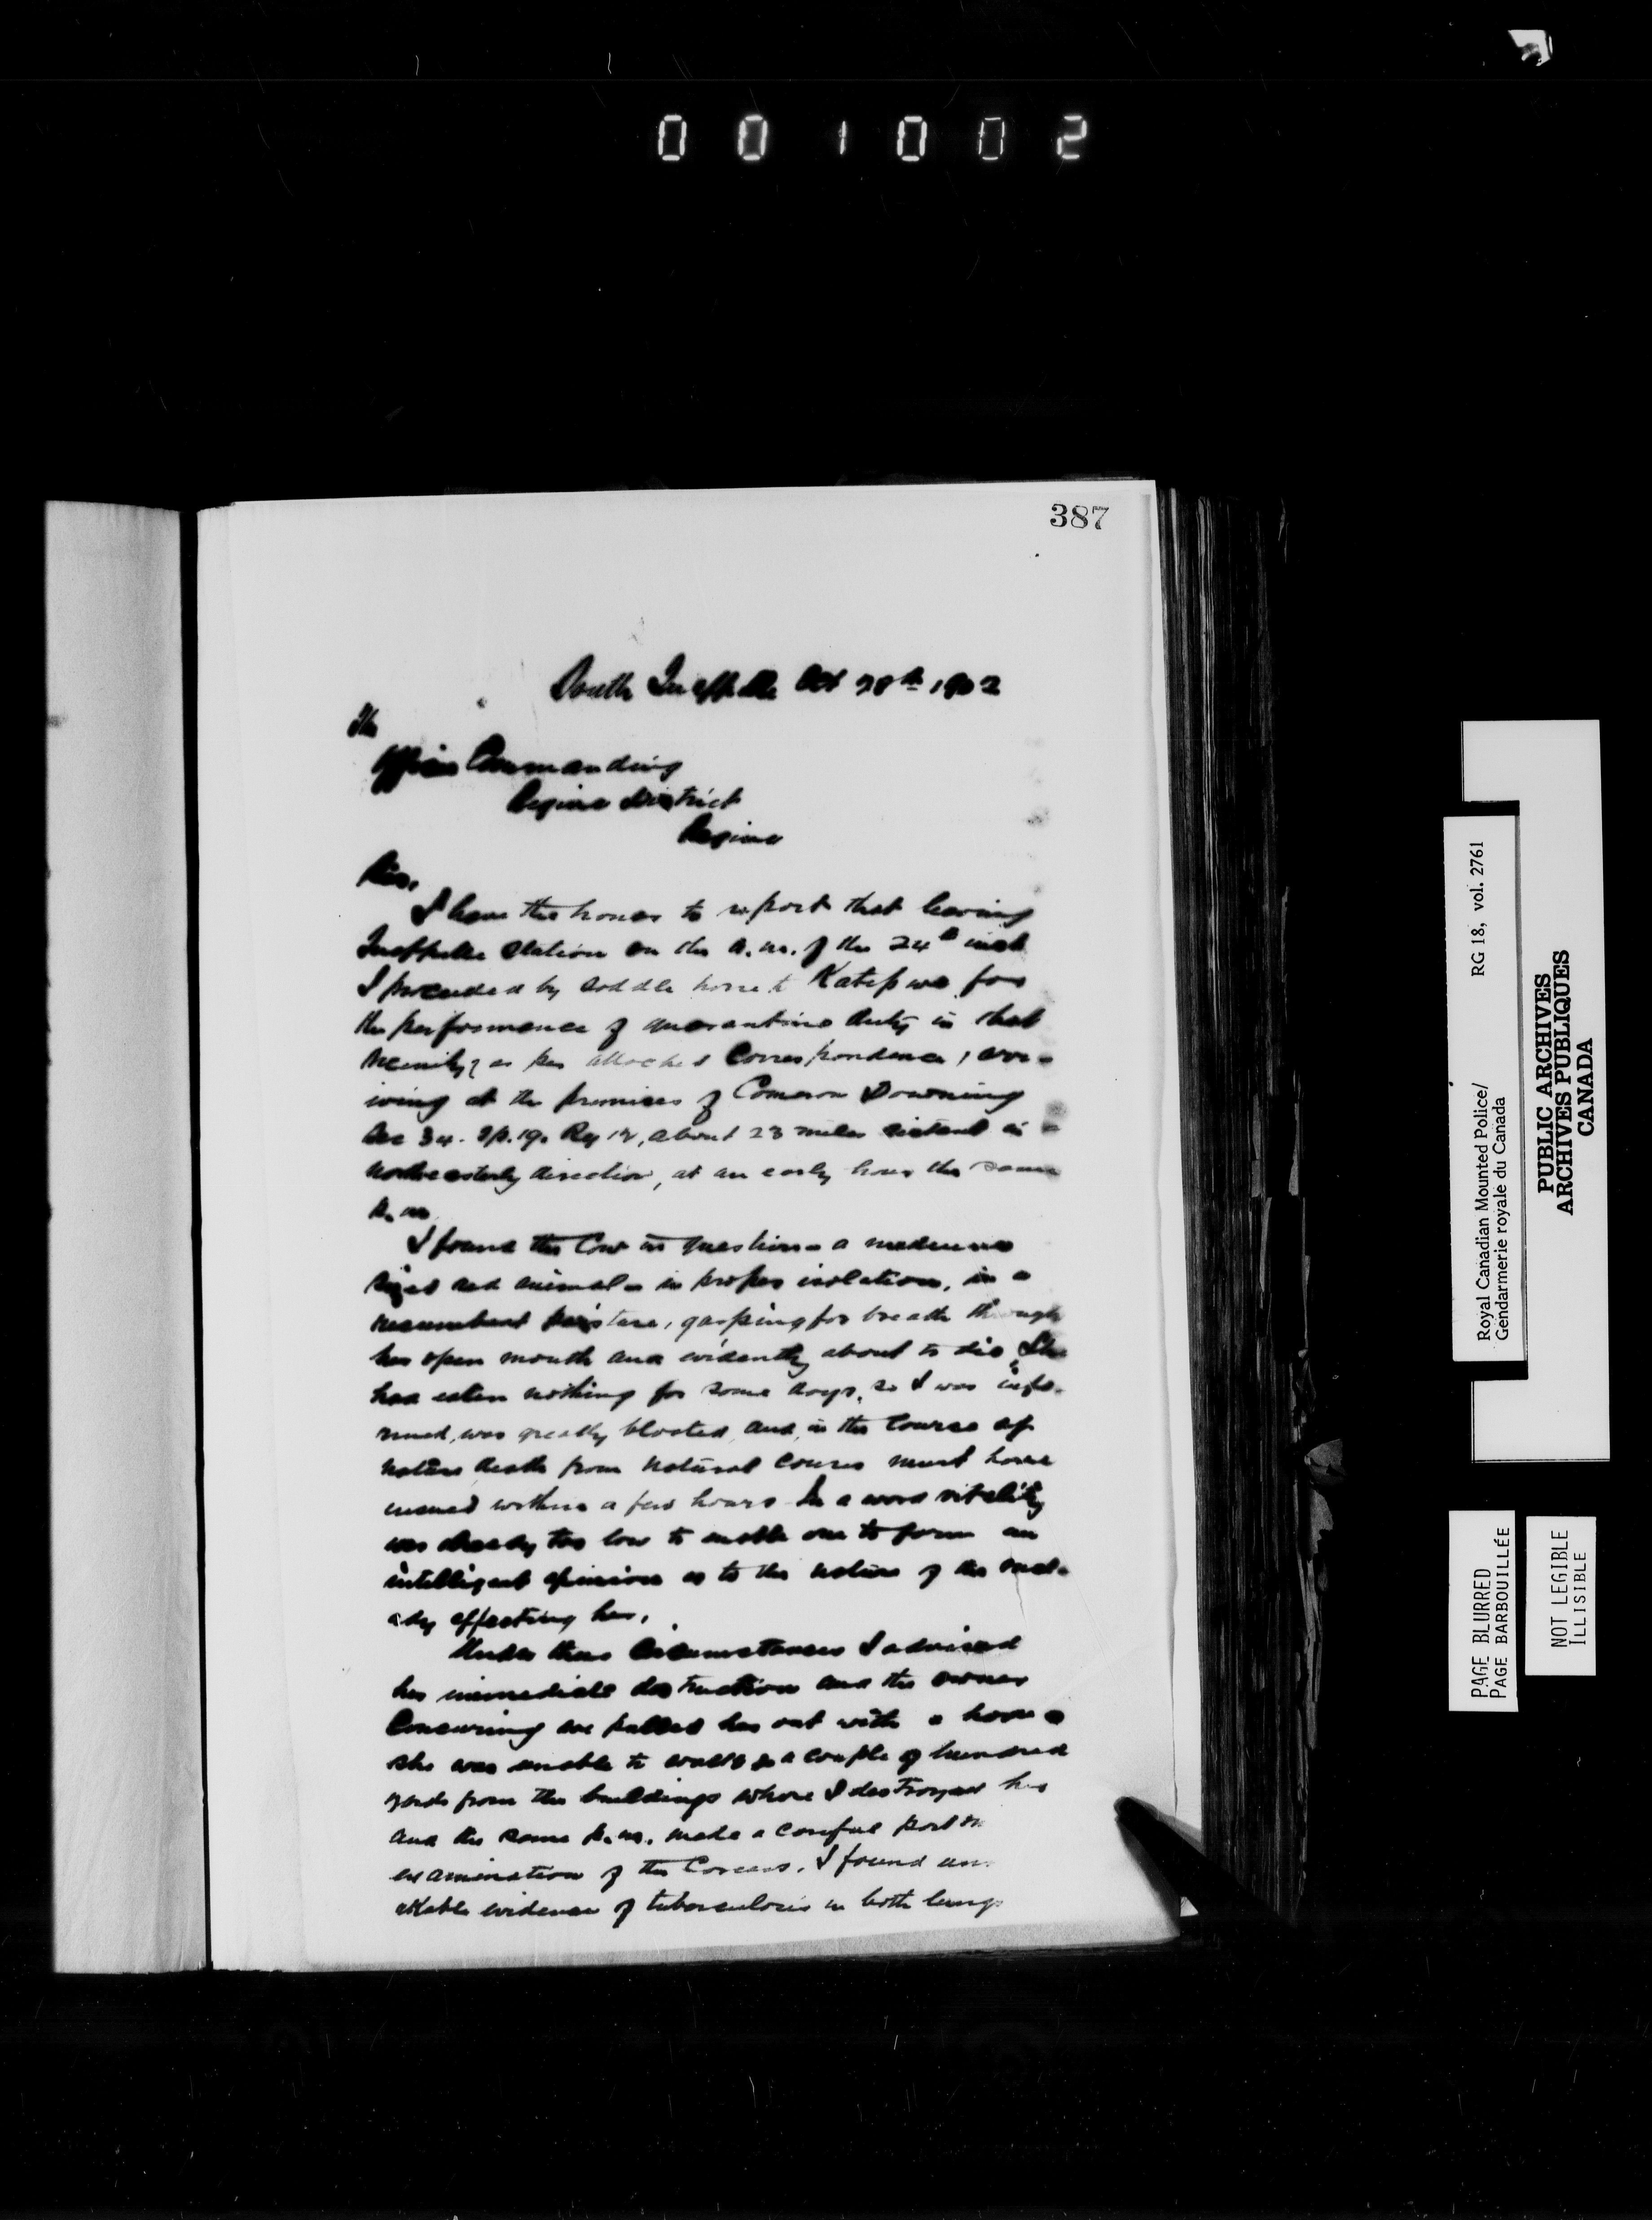 001002
387
South Qu'appelle Oct 28th 1902
The
Officer Commanding
Regina District
Regina
Sir,
I have the honor to report that leaving
Qu'appelle Station on the a.m. of the 24th inst
I proceeded by saddle horse to Katepwe for
the performance of quarantine duty in that
vicinity, as per attached Correspondence, arr-
iving at the premises of Cameron Downing
Sec 34. Tp. 19. Rg 12, about 23 miles distant in a
northeasterly direction, at an early hour the same
p.m.
I found the Cow in question - a medium
sized red animal - in proper isolation, in a
recumbent posture, gasping for breath through
her open mouth and evidently about to die. She
had eaten nothing for some days, so I was info-
rmed, was greatly bloated and, in the course of
nature death from natural causes must have
ensued within a few hours. In a word vitality
was already too low to enable one to form an
intelligent opinion as to the nature of the mal-
ady affecting her.
Under these Circumstances I advised
her immediate destruction and the owner
Concurring we pulled her out with a horse
she was unable to walk a couple of hundred
yards from the buildings where I destroyed her
and the same p.m. made a careful post m
examination of the Carcass. I found un
akable evidence of tuberculosis in both lungs
Royal Canadian Mounted Police/ RG 18, vol. 2761
Gendarmerie royale du Canada
PUBLIC ARCHIVES
ARCHIVES PUBLIQUES
CANADA
PAGE BLURRED
PAGE BARBOUILLÉE
NOT LEGIBLE
ILLISIBLE